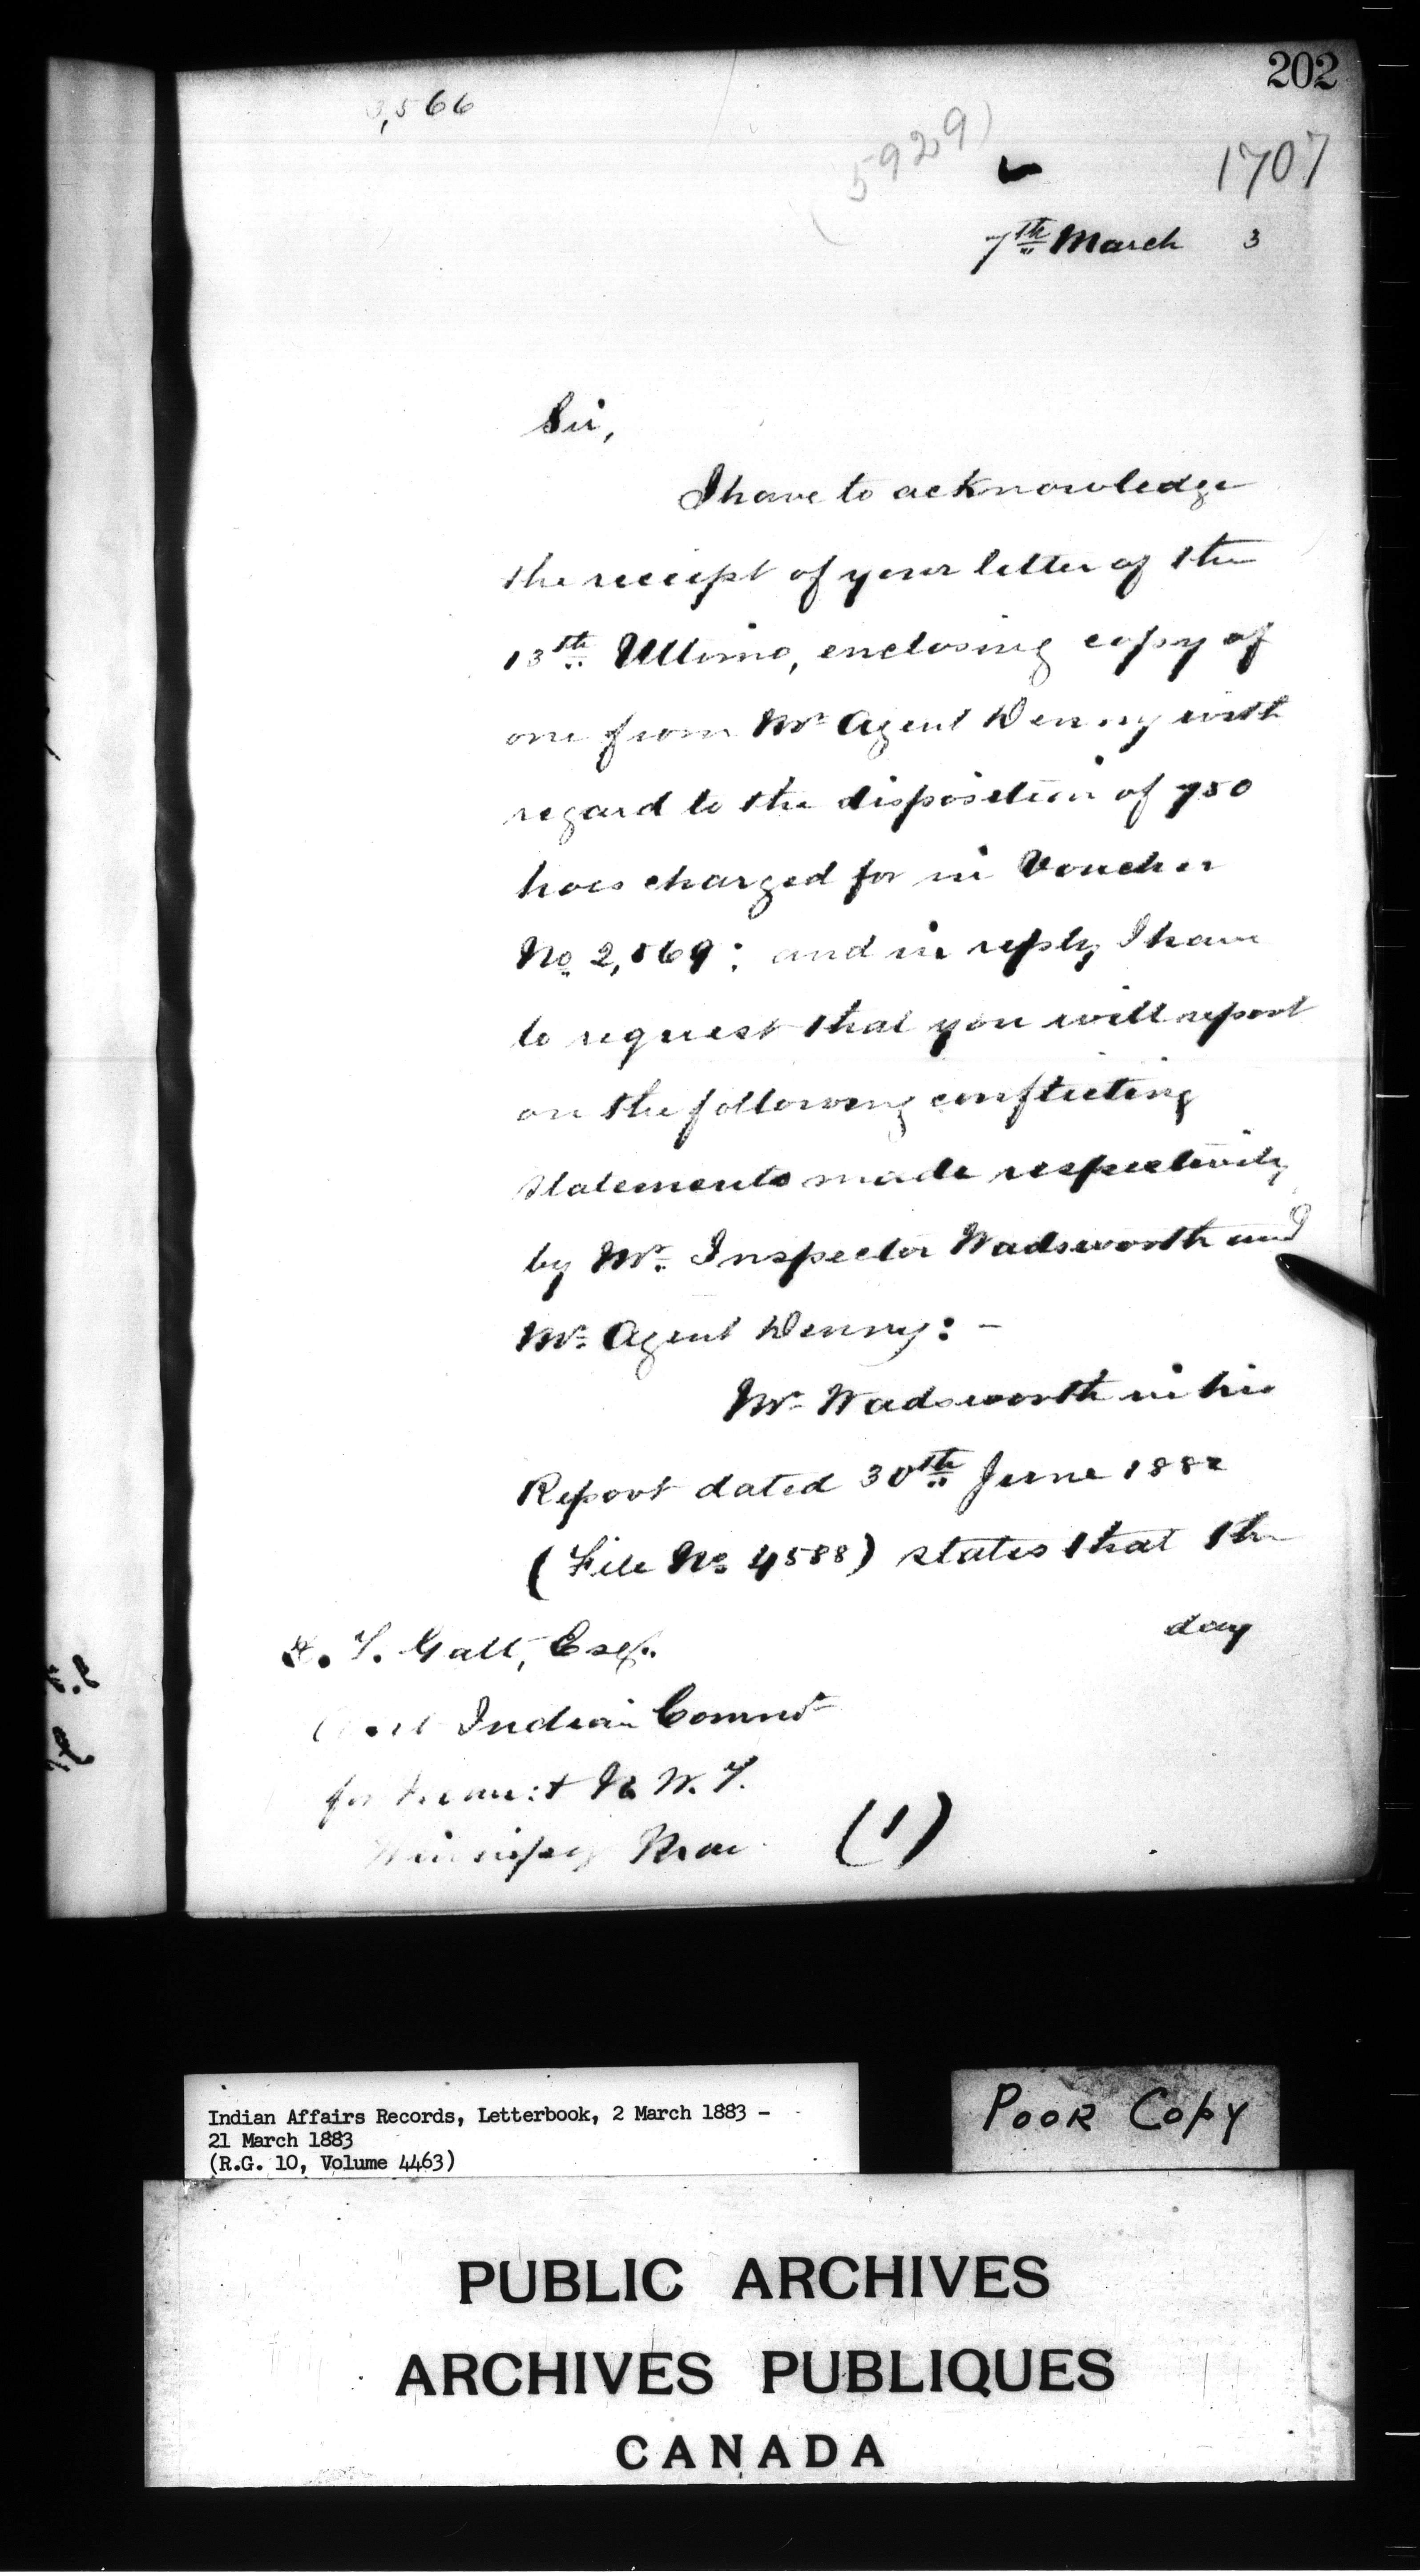 202
3,566
(5929)
1707
7th March 3
Sir,
I have to acknowledge
the receipt of your letter of the
13th Ultimo, enclosing copy of
one from Mr Agent Denny with
regard to the disposition of 750
hoes charged for in Voucher
No 2,869: and in reply I have
to request that you will report
on the following conflicting
statements made respectively
by Mr. Inspector Wadsworth and
Mr. Agent Denny: -
Mr. Wadsworth in his
Report dated 30th June 1882
(File No 4588) states that the
day
T. Galt, Esq.
Indian Commr
for N. W. T.
Winnipeg Man
(1)
Indian Affairs Records, Letterbook, 2 March 1883 -
21 March 1883
(R.G. 10, Volume 4463)
POOR COPY
PUBLIC ARCHIVES
ARCHIVES PUBLIQUES
CANADA